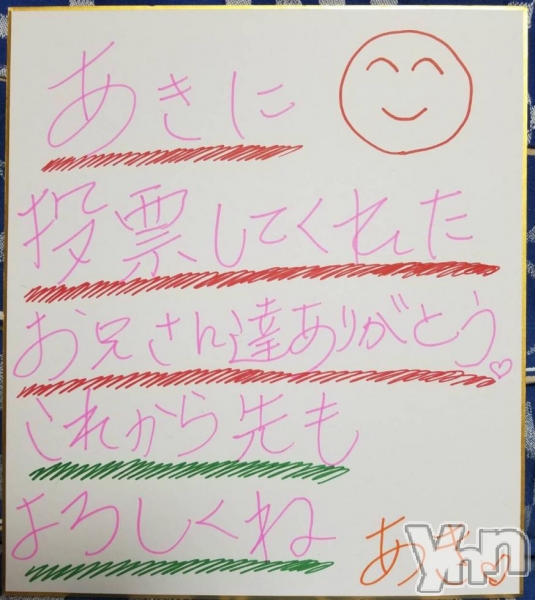 あきに
投票してくれた
お兄さん達ありがとう♡
これから先も
よろしくね
あき♡